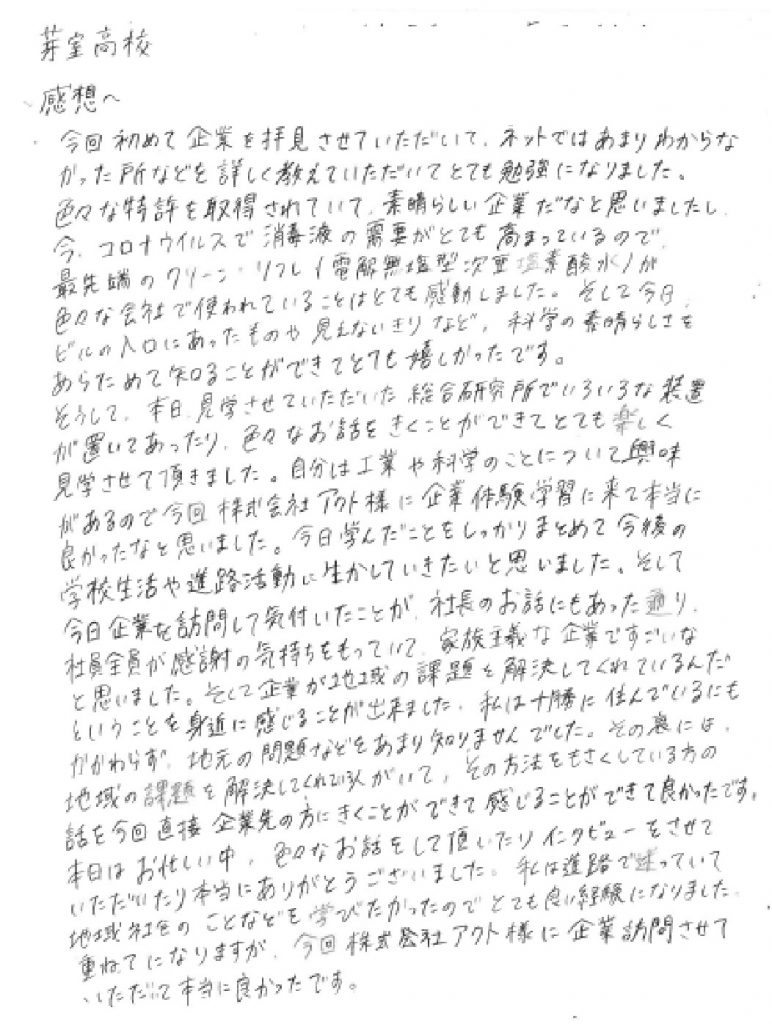 芽室高校
感想へ
今回初めて企業を拝見させていただいて、ネットではあまりわからな
かった所などを詳しく教えていただいてとても勉強になりました。
色々な特許を取得されていて、素晴らしい企業だなと思いましたし、
今、コロナウイルスで消毒液の需要がとても高まっているので、
最先端のクリーン・リフレ(電解無塩型次亜塩素酸水)が
色々な会社で使われていることはとても感動しました。そして今日、
ビルの入口にあったものや見えないきりなど、科学の素晴らしさを
あらためて知ることができてとても嬉しかったです。
そうして、本日、見学させていただいた総合研究所でいろいろな装置
が置いてあったり、色々なお話をきくことができてとても楽しく
見学させて頂きました。自分は工業や科学のことについて興味
があるので今回株式会社アクト様に企業体験学習に来て本当に
良かったなと思いました。今日学んだことをしっかりまとめて今後の
学校生活や進路活動に生かしていきたいと思いました。そして
今日企業を訪問して気付いたことが、社長のお話にもあった通り、
社員全員が感謝の気持ちをもっていて、家族主義な企業ですごいな
と思いました。そして企業が地域の課題を解決してくれているんだ
ということを身近に感じることが出来ました。私は十勝に住んでいるにも
かかわらず、地元の問題などをあまり知りませんでした。その裏には、
地域の課題を解決してくれている人がいて、その方法をもさくしている方の
話を今回直接企業先の方にきくことができて感じることができて良かったです。
本日はお忙しい中、色々なお話をして頂いたりインタビューをさせて
いただいたり本当にありがとうございました。私は進路で迷っていて
地域社会のことなどを学びたかったのでとても良い経験になりました。
重ねてになりますが、今回株式会社アクト様に企業訪問させて
いただいて本当に良かったです。